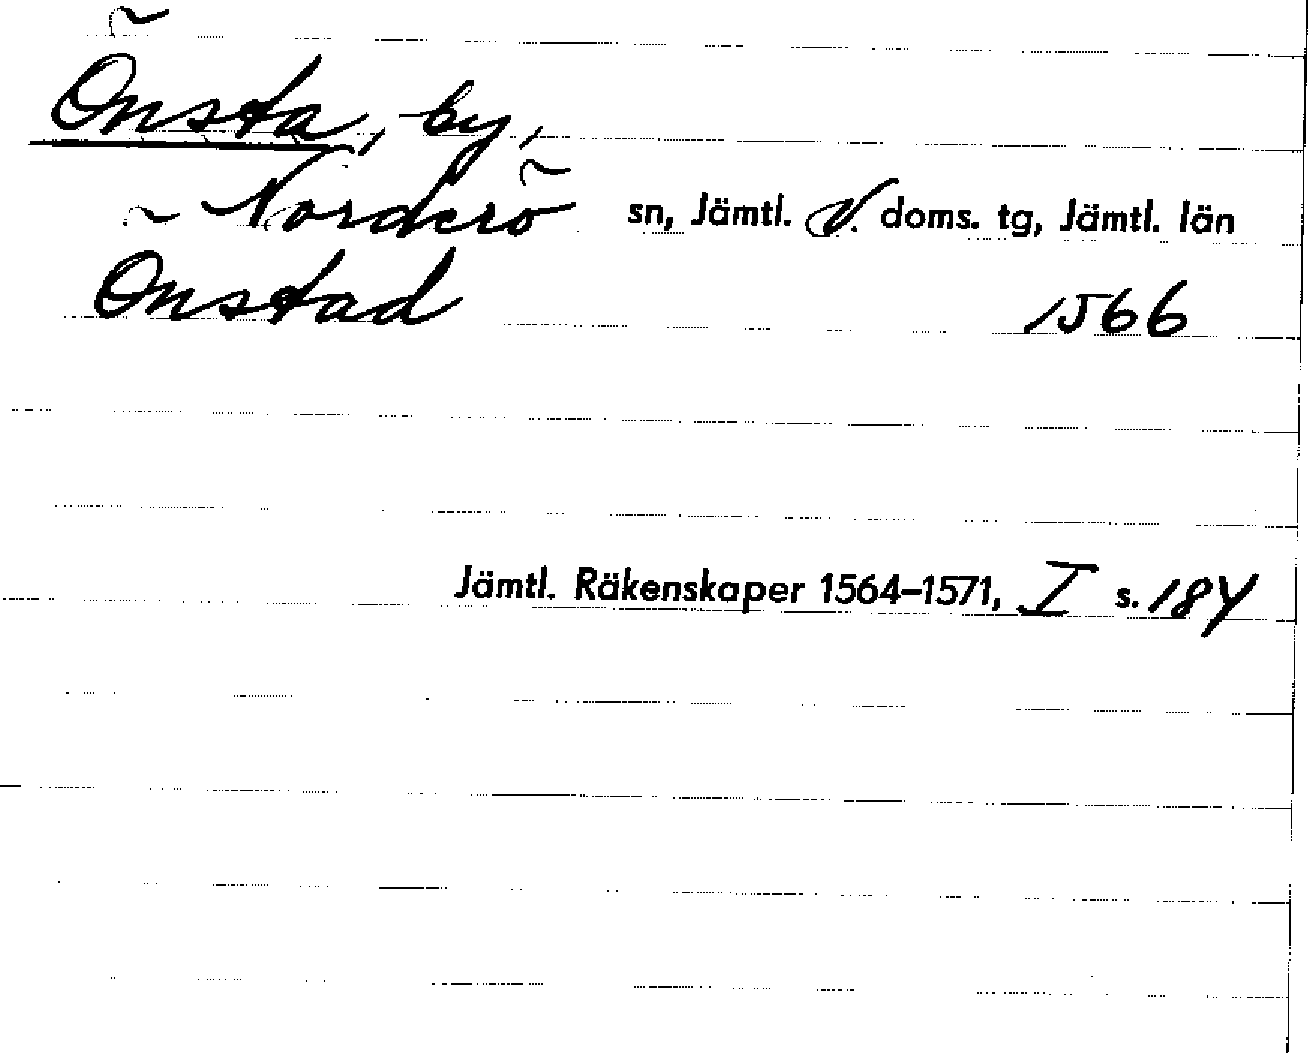 Önsta, by,
Norderö sn, Jämtl. V. doms. tg, Jämtl. län
Önstad 1566
Jämtl. Räkenskaper 1564–1571, I s. 184